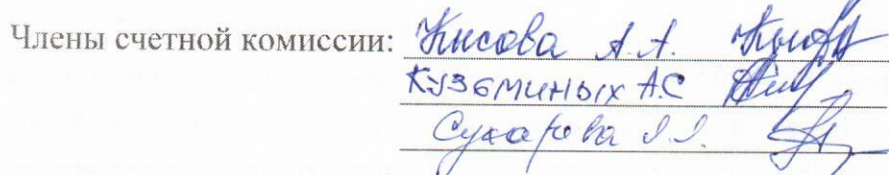 Члены счетной комиссии: Кисова А.А.
Кузьминых А.С
Сухарева